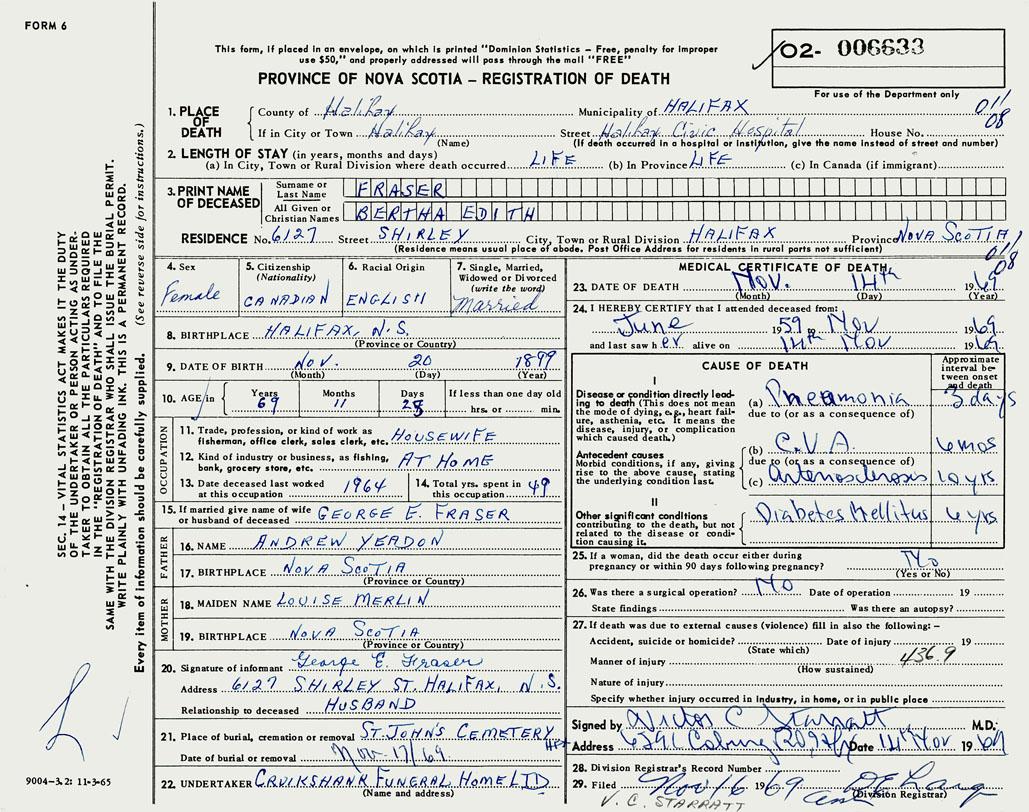 FORM 6
This form, if placed in an envelope, on which is printed "Dominion Statistics – Free, penalty for improper
use $50," and properly addressed will pass through the mail "FREE"
PROVINCE OF NOVA SCOTIA – REGISTRATION OF DEATH
02- 006633
For use of the Department only
011
08
1. PLACE OF DEATH
County of Halifax Municipality of HALIFAX
If in City or Town Halifax Street Halifax Civic Hospital House No.
(Name) (If death occurred in a hospital or institution, give the name instead of street and number)
2. LENGTH OF STAY (in years, months and days)
(a) In City, Town or Rural Division where death occurred LIFE (b) In Province LIFE (c) In Canada (if immigrant)
3. PRINT NAME OF DECEASED
Surname or Last Name FRASER
All Given or Christian Names BERTHA EDITH
RESIDENCE No. 6127 Street SHIRLEY City, Town or Rural Division HALIFAX Province NOVA SCOTIA
(Residence means usual place of abode. Post Office Address for residents in rural parts not sufficient)
011
08
4. Sex
Female
5. Citizenship
(Nationality)
CANADIAN
6. Racial Origin
ENGLISH
7. Single, Married,
Widowed or Divorced
(write the word)
Married
8. BIRTHPLACE HALIFAX, N.S.
(Province or Country)
9. DATE OF BIRTH Nov. 20 1899
(Month) (Day) (Year)
10. AGE in
Years Months Days If less than one day old
69 11 25 hrs. or min.
OCCUPATION
11. Trade, profession, or kind of work as
fisherman, office clerk, sales clerk, etc. HOUSEWIFE
12. Kind of industry or business, as fishing,
bank, grocery store, etc. AT HOME
13. Date deceased last worked
at this occupation 1964
14. Total yrs. spent in
this occupation 49
15. If married give name of wife
or husband of deceased GEORGE E. FRASER
FATHER
16. NAME ANDREW YEADON
17. BIRTHPLACE NOVA SCOTIA
(Province or Country)
MOTHER
18. MAIDEN NAME LOUISE MERLIN
19. BIRTHPLACE NOVA SCOTIA
(Province or Country)
20. Signature of informant George E. Fraser
Address 6127 SHIRLEY ST. HALIFAX, N.S.
Relationship to deceased HUSBAND
21. Place of burial, cremation or removal ST. JOHN'S CEMETERY HFX
Date of burial or removal Nov. 17/69
22. UNDERTAKER CRUIKSHANK FUNERAL HOME LTD
(Name and address)
MEDICAL CERTIFICATE OF DEATH
23. DATE OF DEATH Nov. 14th 1969
(Month) (Day) (Year)
24. I HEREBY CERTIFY that I attended deceased from:
June 1959 to Nov 1969
and last saw her alive on 14th Nov 1969
CAUSE OF DEATH
Approximate
interval be-
tween onset
and death
I
Disease or condition directly lead-
ing to death (This does not mean
the mode of dying, e.g., heart fail-
ure, asthenia, etc. It means the
disease, injury, or complication
which caused death.)
(a) Pneumonia 3 days
due to (or as a consequence of)
Antecedent causes
Morbid conditions, if any, giving
rise to the above cause, stating
the underlying condition last.
(b) C.V.A. 6 mos
due to (or as a consequence of)
(c) arteriosclerosis 10 yrs
II
Other significant conditions
contributing to the death, but not
related to the disease or condi-
tion causing it.
Diabetes Mellitus 6 yrs
25. If a woman, did the death occur either during
pregnancy or within 90 days following pregnancy? No
(Yes or No)
26. Was there a surgical operation? No Date of operation 19
State findings Was there an autopsy?
27. If death was due to external causes (violence) fill in also the following: –
Accident, suicide or homicide? Date of injury 19
(State which)
Manner of injury 436.9
(How sustained)
Nature of injury
Specify whether injury occurred in industry, in home, or in public place
Signed by Victor C Starratt M.D.
Address 6291 Coburg Rd Hfx Date 14th Nov 1969
28. Division Registrar's Record Number
29. Filed Nov 16 1969
(Division Registrar)
V. C. STARRATT
SEC. 14 – VITAL STATISTICS ACT MAKES IT THE DUTY
OF THE UNDERTAKER OR PERSON ACTING AS UNDER-
TAKER TO OBTAIN ALL THE PARTICULARS REQUIRED
IN THE "REGISTRATION OF DEATH" AND TO FILE THE
SAME WITH THE DIVISION REGISTRAR WHO SHALL ISSUE THE BURIAL PERMIT.
WRITE PLAINLY WITH UNFADING INK. THIS IS A PERMANENT RECORD.
Every item of information should be carefully supplied. (See reverse side for instructions.)
9004–3.2: 11-3-65